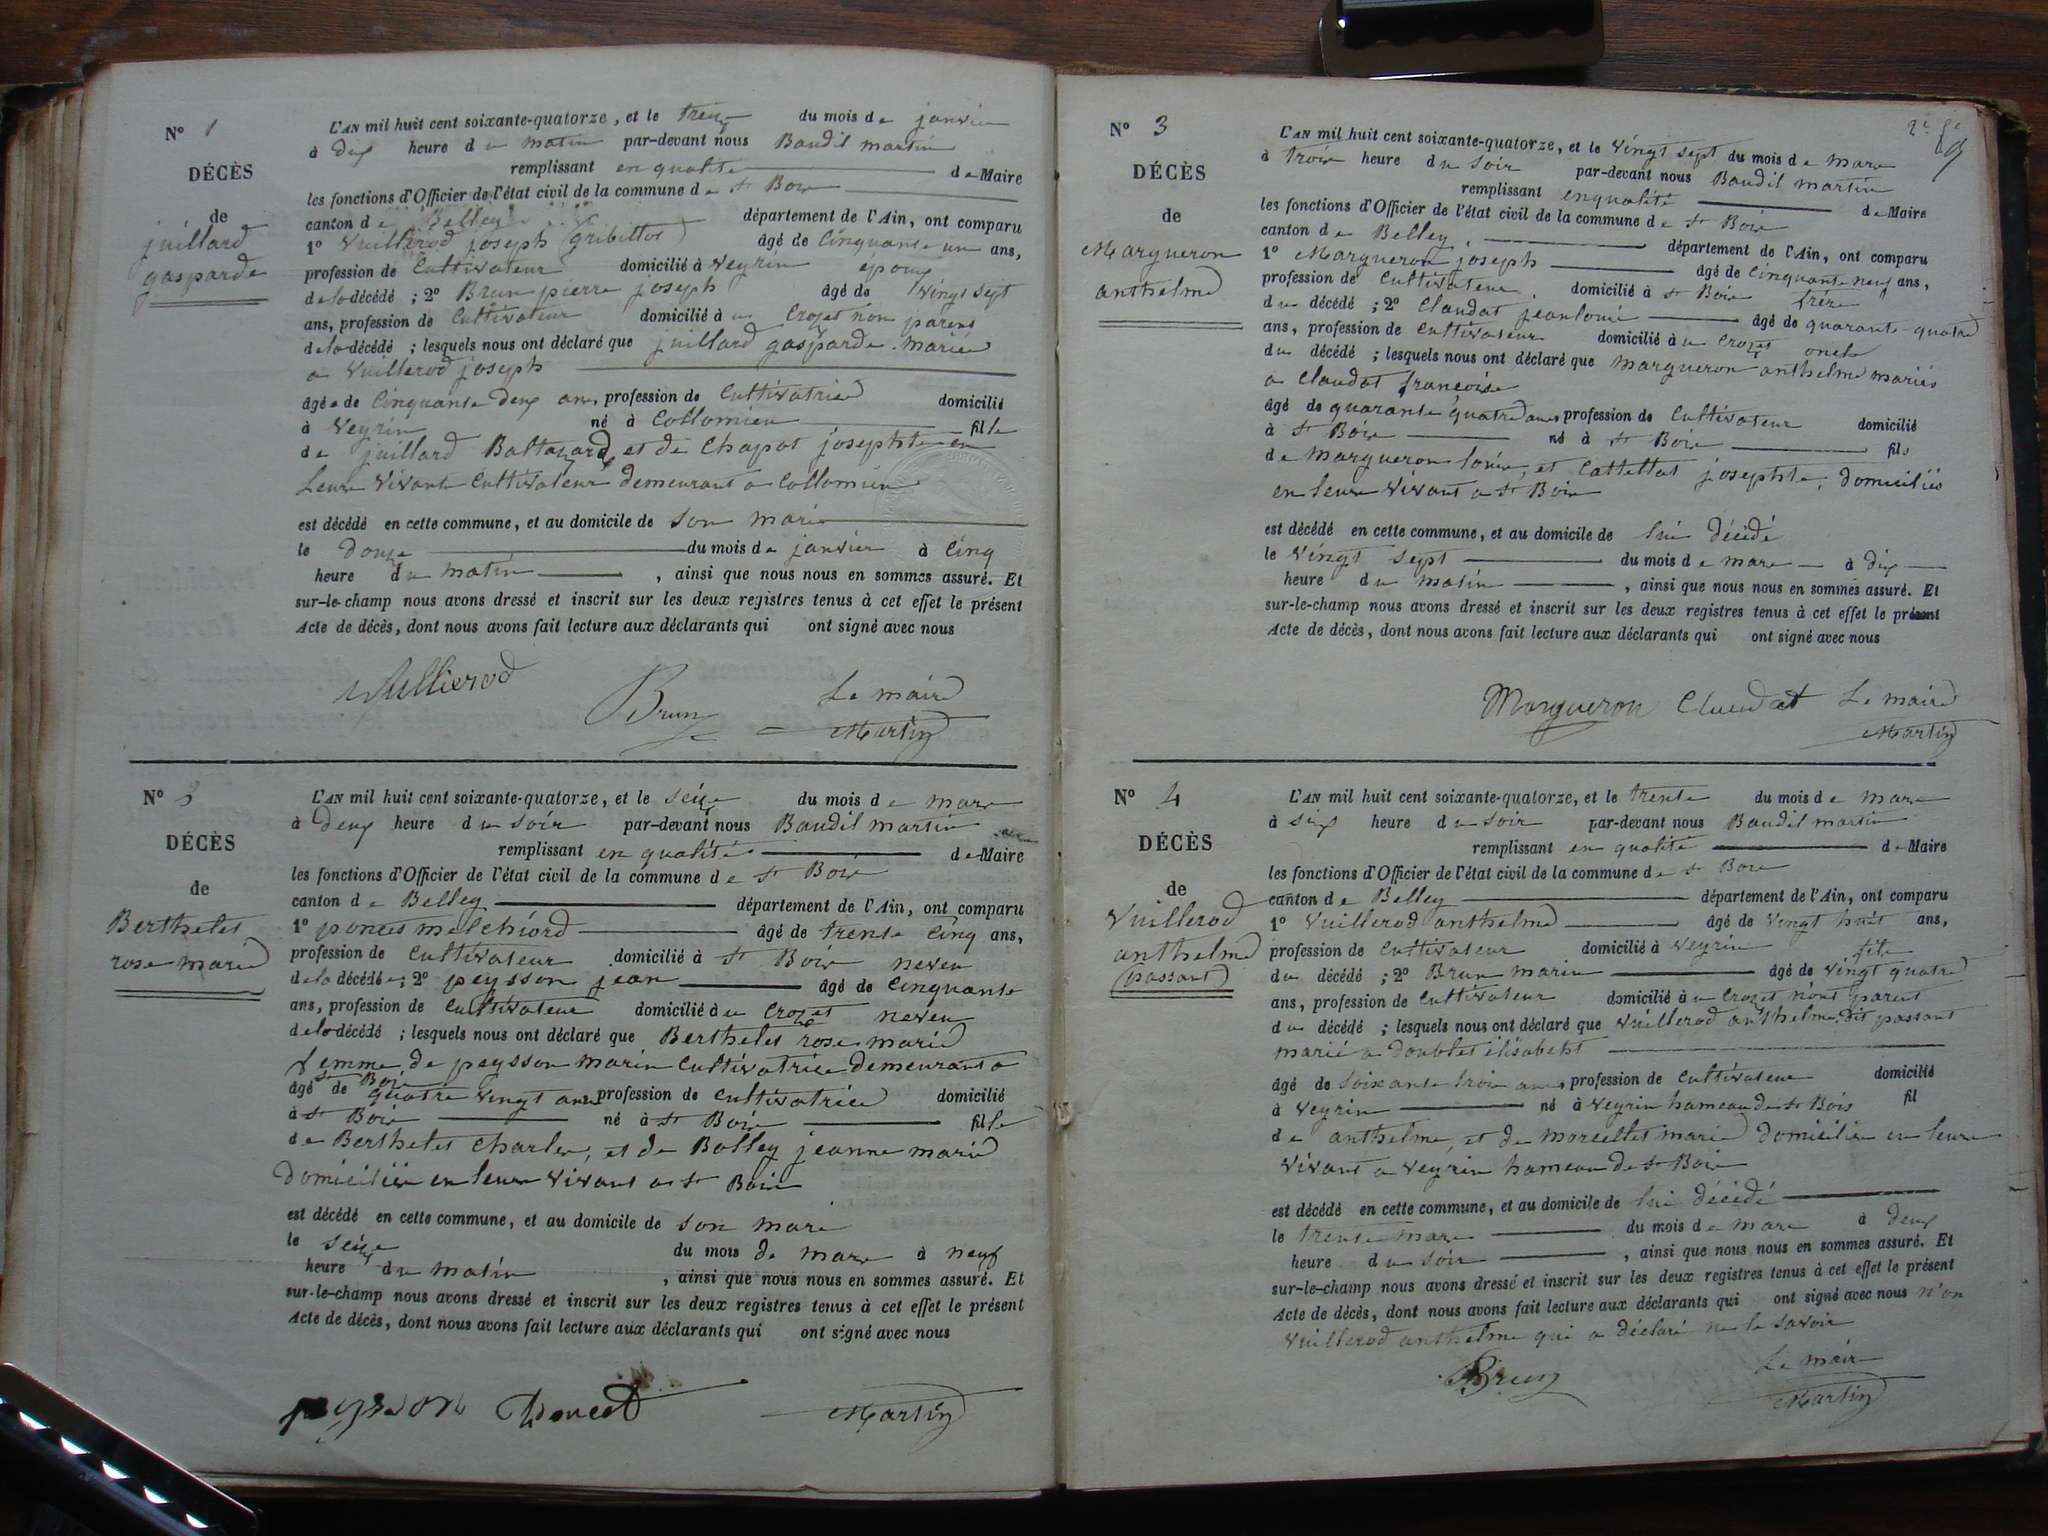 N° 1
DÉCÈS
de
juillard
gasparde
L'AN mil huit cent soixante-quatorze, et le treize du mois de janvier
à dix heure du matin par-devant nous Baudil martin
remplissant en qualité de Maire
les fonctions d'Officier de l'état civil de la commune de St Bois
canton de Belley département de l'Ain, ont comparu
1° Vuillerod joseph (gribittos) âgé de Cinquante un ans,
profession de Cultivateur domicilié à Veyrin époux
de la décédé ; 2° Brun pierre joseph âgé de Vingt sept
ans, profession de Cultivateur domicilié à au Crozet non parent
de la décédé ; lesquels nous ont déclaré que juillard gasparde mariée
a Vuillerod joseph
âgée de Cinquante deux ans profession de Cultivatrice domicilié
à Veyrin né à Collomieu fille
de juillard Baltazard et de Chapot josephte en
Leurs Vivants Cultivateurs demeurant a Collomieu
est décédé en cette commune, et au domicile de son mari
le douze du mois de janvier à Cinq
heure du matin , ainsi que nous nous en sommes assuré. Et
sur-le-champ nous avons dressé et inscrit sur les deux registres tenus à cet effet le présent
Acte de décès, dont nous avons fait lecture aux déclarants qui ont signé avec nous
Vullierod Brun Le maire
Martin
N° 2
DÉCÈS
de
Berthelet
rose marie
L'AN mil huit cent soixante-quatorze, et le seize du mois de mars
à deux heure du soir par-devant nous Baudil martin
remplissant en qualité de Maire
les fonctions d'Officier de l'état civil de la commune de St Bois
canton de Belley département de l'Ain, ont comparu
1° poncet melchiord âgé de trente Cinq ans,
profession de Cultivateur domicilié à St Bois neveu
de la décédée ; 2° peysson jean âgé de Cinquante
ans, profession de Cultivateur domicilié à au Crozet neveu
de la décédé ; lesquels nous ont déclaré que Berthelet rose marie
femme de peysson marin Cultivatrice demeurant a
St Bois
âgé de quatre vingt ans profession de Cultivatrice domicilié
à St Bois né à St Bois fille
de Berthelet Charles, et de Bolley jeanne marie
domiciliés en leurs vivant a St Bois
est décédé en cette commune, et au domicile de son mari
le seize du mois de mars à neuf
heure du matin , ainsi que nous nous en sommes assuré. Et
sur-le-champ nous avons dressé et inscrit sur les deux registres tenus à cet effet le présent
Acte de décès, dont nous avons fait lecture aux déclarants qui ont signé avec nous
peysson Poncet Martin
N° 3
DÉCÈS
de
Margueron
anthelme
L'AN mil huit cent soixante-quatorze, et le vingt sept du mois de mars
à trois heure du soir par-devant nous Baudil martin
remplissant en qualité de Maire
les fonctions d'Officier de l'état civil de la commune de St Bois
canton de Belley, département de l'Ain, ont comparu
1° Margueron joseph âgé de Cinquante neuf ans,
profession de Cultivateur domicilié à St Bois frère
du décédé ; 2° Claudat jean louis âgé de quarante quatre
ans, profession de Cultivateur domicilié à au Crozet oncle
du décédé ; lesquels nous ont déclaré que margueron anthelme mariés
a Claudat françoise
âgé de quarante quatre ans profession de Cultivateur domicilié
à St Bois né à St Bois fils
de margueron louis, et Cattettat josephte, domiciliés
en leurs vivant a St Bois
est décédé en cette commune, et au domicile de lui décédé
le vingt sept du mois de mars à dix
heure du matin , ainsi que nous nous en sommes assuré. Et
sur-le-champ nous avons dressé et inscrit sur les deux registres tenus à cet effet le présent
Acte de décès, dont nous avons fait lecture aux déclarants qui ont signé avec nous
Margueron Claudat Le maire
Martin
N° 4
DÉCÈS
de
Vuillerod
anthelme
(passant)
L'AN mil huit cent soixante-quatorze, et le trente du mois de mars
à six heure du soir par-devant nous Baudil martin
remplissant en qualité de Maire
les fonctions d'Officier de l'état civil de la commune de St Bois
canton de Belley département de l'Ain, ont comparu
1° Vuillerod anthelme âgé de vingt huit ans,
profession de Cultivateur domicilié à Veyrin fils
du décédé ; 2° Brun marin âgé de vingt quatre
ans, profession de Cultivateur domicilié à au Crozet n'ont parent
du décédé ; lesquels nous ont déclaré que Vuillerod anthelme dit passant
marié a doublet élisabeht
âgé de soixante trois ans profession de Cultivateur domicilié
à Veyrin né à Veyrin hameau de St Bois fil
de anthelme, et de morcellet marie domiciliés en leurs
vivant a Veyrin hameau de St Bois
est décédé en cette commune, et au domicile de lui décédé
le trente mars du mois de mars à deux
heure du soir , ainsi que nous nous en sommes assuré. Et
sur-le-champ nous avons dressé et inscrit sur les deux registres tenus à cet effet le présent
Acte de décès, dont nous avons fait lecture aux déclarants qui ont signé avec nous n'on
Vuillerod anthelme qui a déclaré ne le savoir
Brun Le maire
Martin